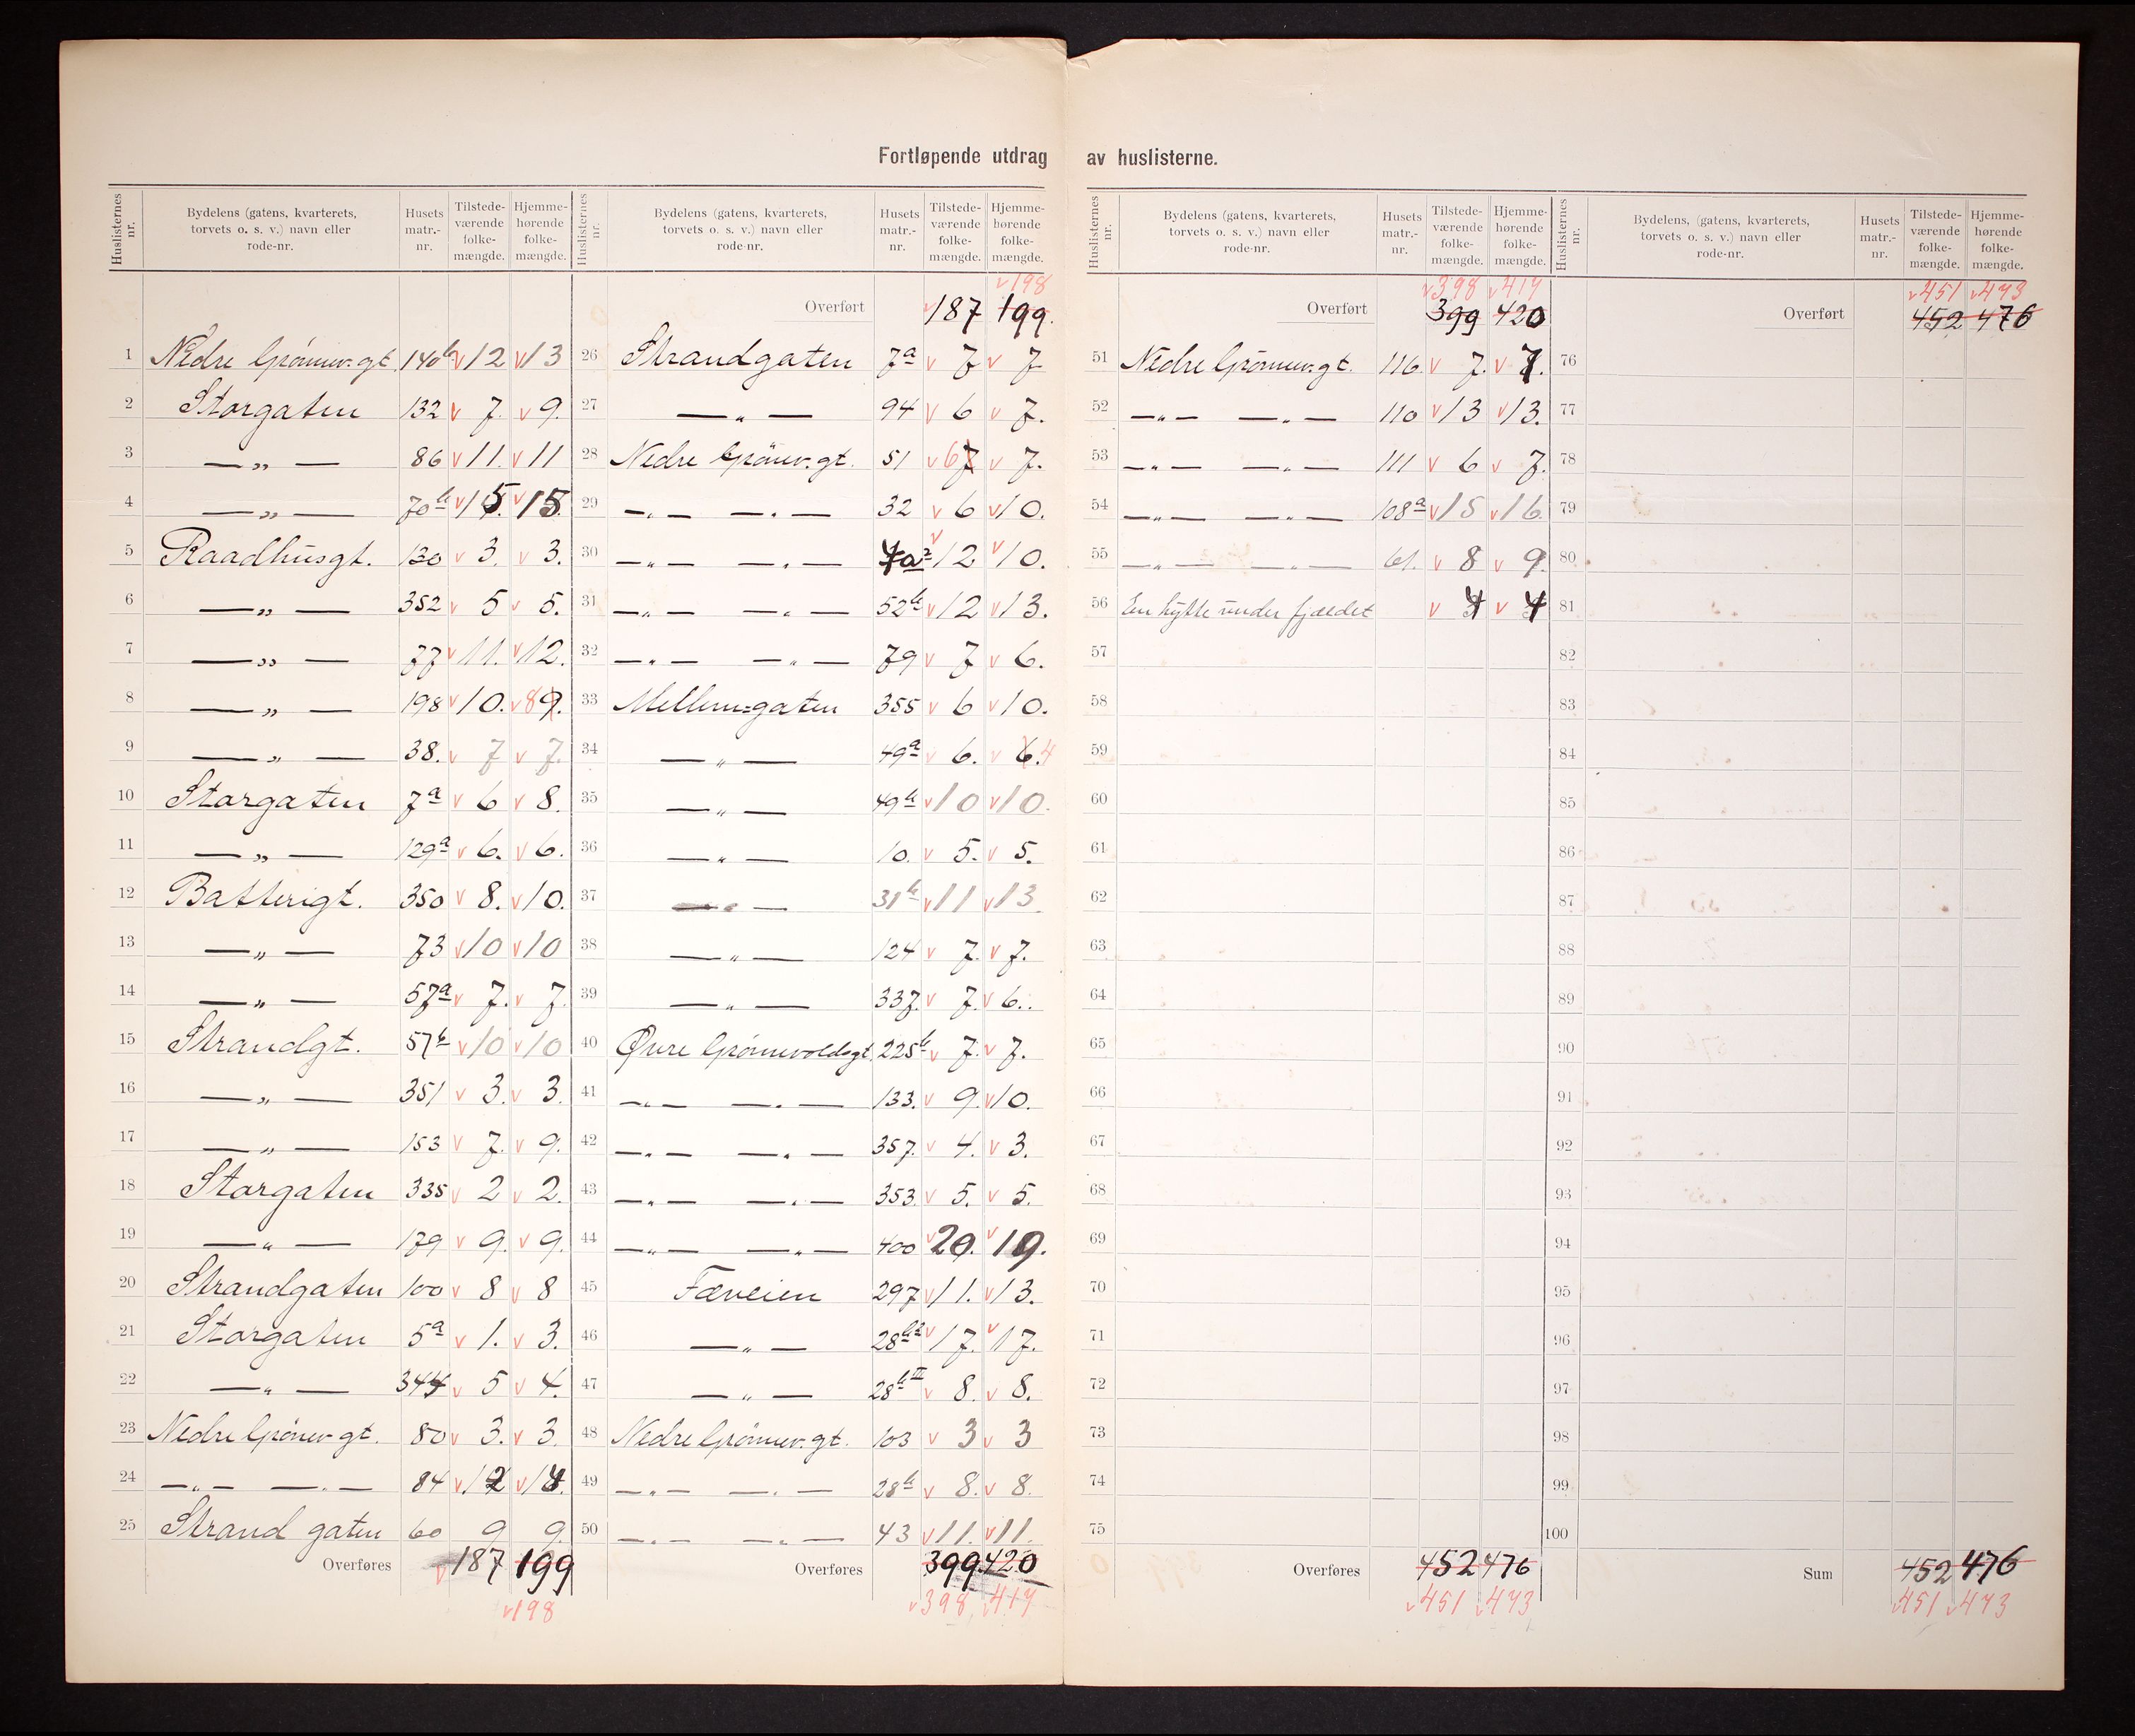 Fortløpende utdrag av huslisterne.
Huslisternes nr. Bydelens (gatens, kvarterets, torvets o. s. v.) navn eller rode-nr. Husets matr.-nr. Tilstedeværende folkemængde. Hjemmehørende folkemængde.
1 Nedre Grønnev. gt. 140b v 12 v 13
2 Storgaten 132 v 7. v 9.
3 — „ — 86 v 11. v 11
4 — „ — 70b v 15. v 15.
5 Raadhusgt. 130 v 3. v 3.
6 — „ — 352 v 5 v 5.
7 — „ — 77 v 11. v 12.
8 — „ — 198 v 10. v 8 9.
9 — „ — 38. v 7 v 7.
10 Storgaten 7a v 6 v 8.
11 — „ — 129a v 6. v 6.
12 Batterigt. 350 v 8. v 10.
13 — „ — 73 v 10 v 10
14 — „ — 57a v 7. v 7.
15 Strandgt. 57b v 10 v 10
16 — „ — 351 v 3. v 3.
17 — „ — 153 v 7. v 9.
18 Storgaten 335 v 2 v 2.
19 — „ — 179 v 9. v 9.
20 Strandgaten 100 v 8 v 8
21 Storgaten 5a v 1. v 3.
22 — „ — 344 v 5 v 4.
23 Nedre Grønev. gt. 80 v 3. v 3.
24 — „ — — „ — 84 v 12 v 14.
25 Strandgaten 60 9 9.
Overføres v 187 199
v 198
Huslisternes nr. Bydelens (gatens, kvarterets, torvets o. s. v.) navn eller rode-nr. Husets matr.-nr. Tilstedeværende folkemængde. Hjemmehørende folkemængde.
v 198
Overført v 187 199.
26 Strandgaten 7a v 7 v 7
27 — „ — 94 v 6 v 7.
28 Nedre Grönev. gt. 51 v 6 7 v 7.
29 — „ — — „ — 32 v 6 v 10.
30 — „ — — „ — v 12 v 10.
31 — „ — — „ — 52b v 12 v 13.
32 — „ — — „ — 79 v 7 v 6.
33 Mellemgaten 355 v 6 v 10.
34 — „ — 49a v 6. v 6. 4
35 — „ — 49b v 10 v 10.
36 — „ — 10. v 5. v 5.
37 — „ — 31b v 11 v 13
38 — „ — 124 v 7. v 7.
39 — „ — 337. v 7. v 6.
40 Øvre Grönnevoldsgt. 225b v 7. v 7.
41 — „ — — „ — 133. v 9. v 10.
42 — „ — — „ — 357. v 4. v 3.
43 — „ — — „ — 353. v 5. v 5.
44 — „ — — „ — 400 v 20. v 19.
45 Fæveien 297 v 11. v 13.
46 — „ — 28b2 v 17. v 17.
47 — „ — 28b III v 8. v 8.
48 Nedre Grönnev. gt. 103 v 3 v 3
49 — „ — — „ — 28b v 8. v 8.
50 — „ — — „ — 43 v 11. v 11.
Overføres 399 420
v 398 v 417
Huslisternes nr. Bydelens (gatens, kvarterets, torvets o. s. v.) navn eller rode-nr. Husets matr.-nr. Tilstedeværende folkemængde. Hjemmehørende folkemængde.
v 398 v 417
Overført 399 420
51 Nedre Grönnev. gt. 116. v 7. v 7.
52 — „ — — „ — 110 v 13 v 13.
53 — „ — — „ — 111 v 6 v 7.
54 — „ — — „ — 108a v 15 v 16.
55 — „ — — „ — 61. v 8 v 9.
56 En hytte under fjældet v 4 v 4
57
58
59
60
61
62
63
64
65
66
67
68
69
70
71
72
73
74
75
Overføres 452 476
v 451 v 473
Huslisternes nr. Bydelens, (gatens, kvarterets, torvets o. s. v.) navn eller rode-nr. Husets matr.-nr. Tilstedeværende folkemængde. Hjemmehørende folkemængde.
v 451 v 473
Overført 452 476
76
77
78
79
80
81
82
83
84
85
86
87
88
89
90
91
92
93
94
95
96
97
98
99
100
Sum 452 476
v 451 v 473